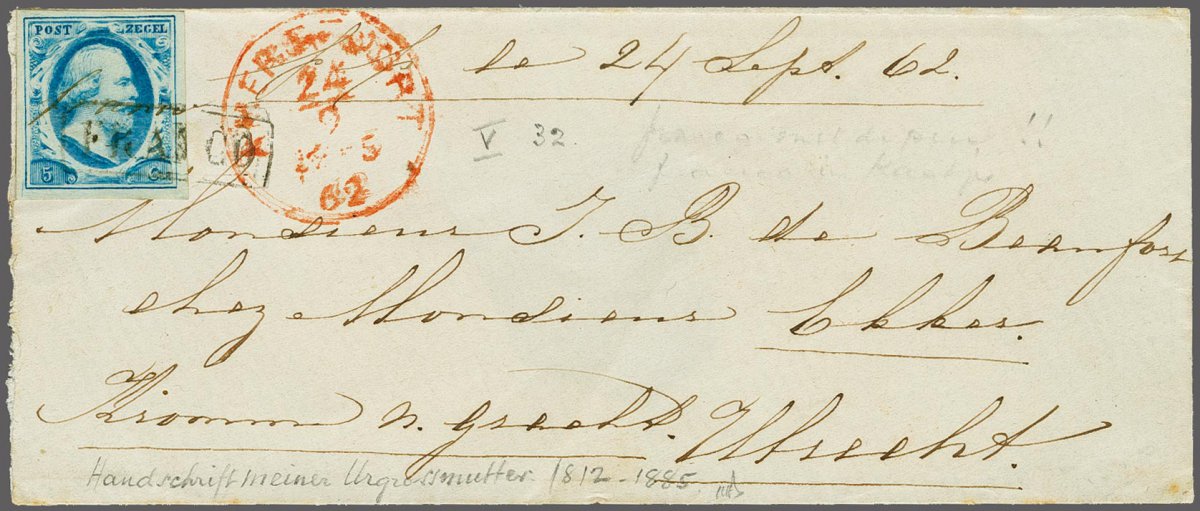 POST ZEGEL
FRANCO
5 C
AMERSFOORT
24
9
62
de 24 Sept. 62.
V 32.
!!
Monsieur J. B. de Beaufort
chez Monsieur Ekker.
Kromm n. gracht. Utrecht.
Handschrift meiner Urgrossmutter 1812-1885.